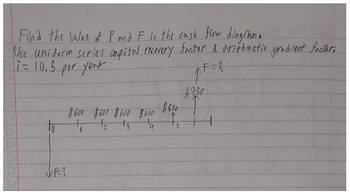 Find the value of P and F in the cash flow diagram.
Use uniform series capital recovery factor & arithmetic gradient factor.
i = 10.5 per year
F=?
$750
$600 $600 $600 $600 $650
0 1 2 3 4 5
P=?